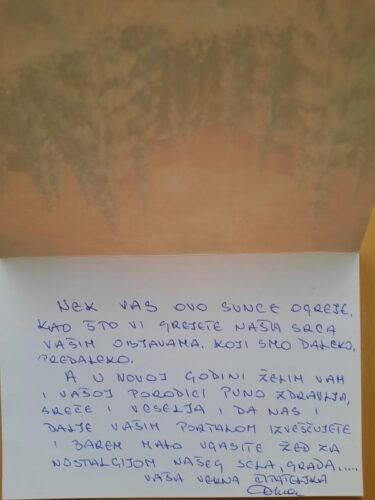 NEK VAS OVO SUNCE OGREJE,
KAO ŠTO VI GREJETE NAŠA SRCA
VAŠIM OBJAVAMA, KOJI SMO DALEKO,
PREDALEKO.
A U NOVOJ GODINI ŽELIM VAM
I VAŠOJ PORODICI PUNO ZDRAVLJA,
SREĆE I VESELJA I DA NAS I
DALJE VAŠIM PORTALOM IZVEŠĆUJETE
I BAREM MALO UGASITE ŽEĐ ZA
NOSTALGIJOM NAŠEG SELA, GRADA.....
VAŠA VERNA ČITATELJKA